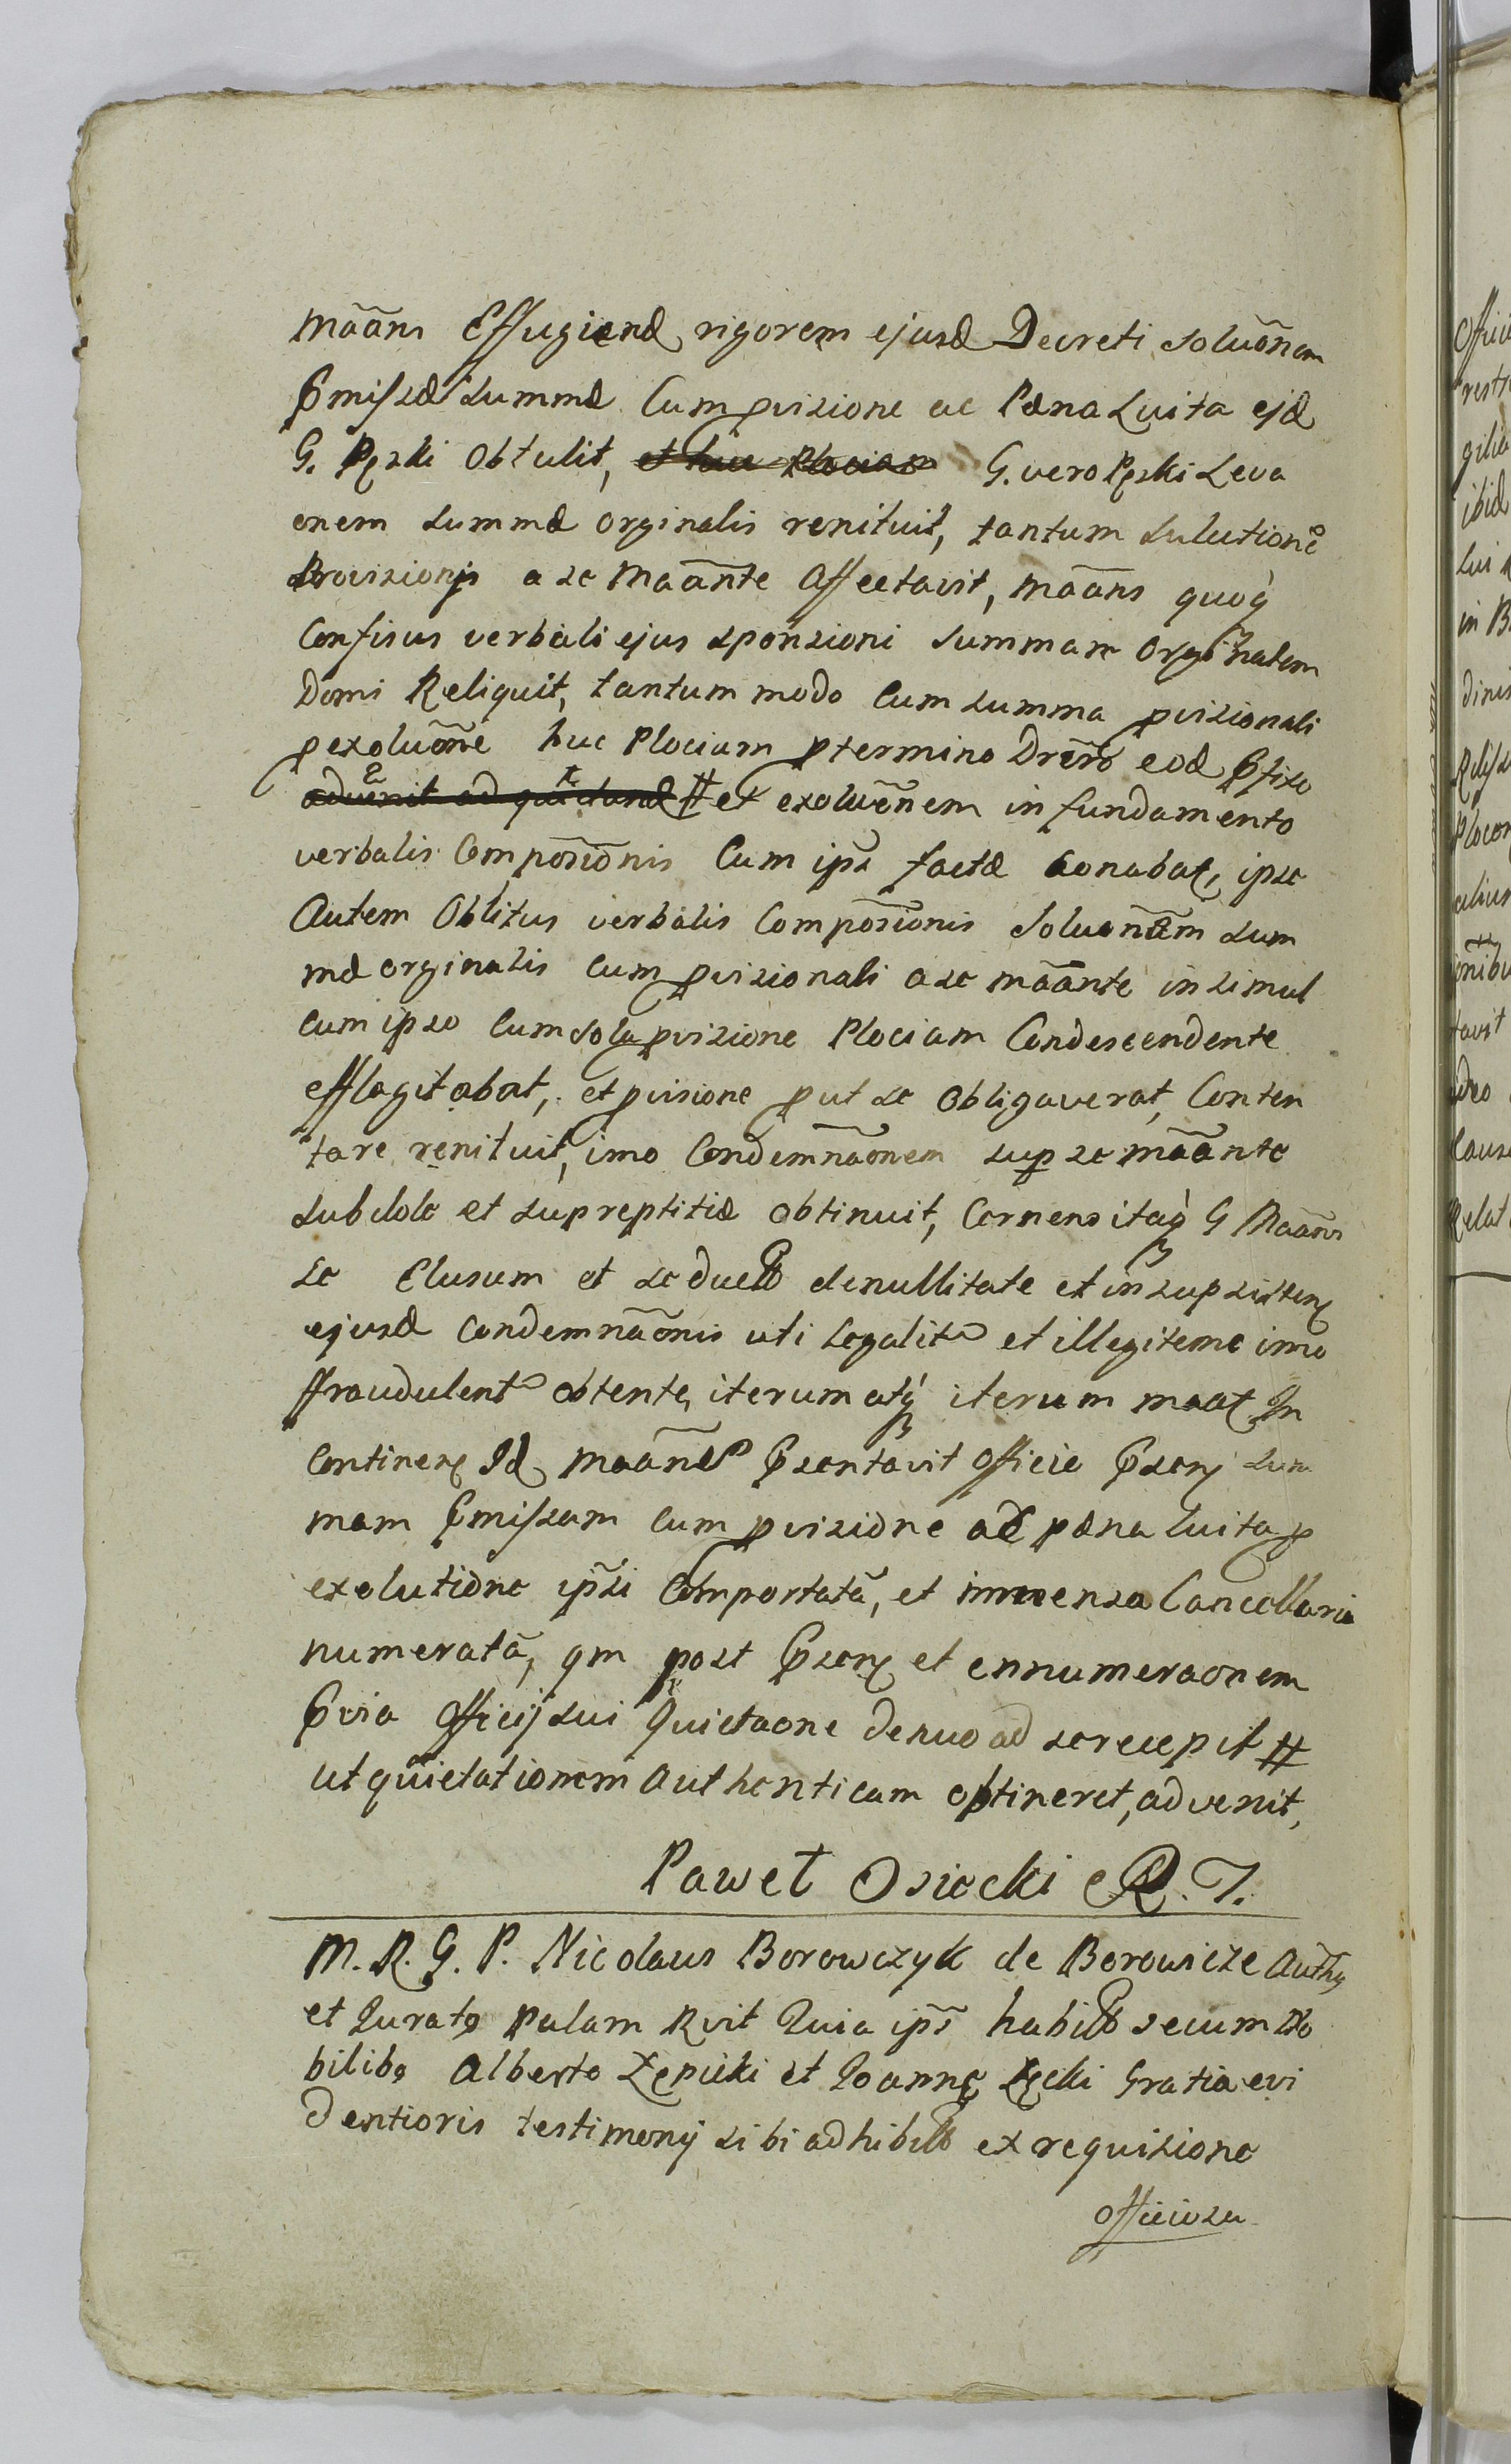 mãans Effugiend rigorem ejusd Decreti soluõnem
Pmissæ summæ Cum pvisione ac Pæna Luita ejd
G. Pęski obtulit, et huc Plociam G. vero Pęski Leva
onem summæ orginalis renituit, tantum sulutione
Provisionis a se Maãnte Affectavit, mãans quoq
Confisus verbali ejus sponsioni summam orginalem
Domi Reliquit, tantum modo Cum summa pvisionali
p exoluõne huc Plociam p termino Drẽro eod Pfixo
advenit ad quietand # et exoluẽnem in fundamento
verbalis Compõsiõnis Cum ips factæ conabat, ipse
Autem Oblitus verbalis Compõsiõnis Soluenãm sum
mæ orginalis cum pvisionali a se mãante insimul
Cum ipso Cum sola pvisione Plociam Condescendente
efflagitabat, et pvisione put se obligaverat, Conten
tare renituit, imo Condemnãonem sup se mãante
subdole et supreptitiæ obtinuit, Cernens itaq G Maãns
se Elusum et seduct de nullitate et insupsisten
ejusd Condemnãonis uti Legalit et illegiteme imo
ffraudulent obtente, iterum atq iterum maat In
Continen Id mãans Psentavit officio Psen sum
mam Pmissam cum pvisione ac pæna luita p
exolutione ipsi Comportatã, et in mensa Cancellaria
numeratã, qm post Psen et ennumeraonem
Pvia officij sui Quietaone denuo ad se recepit #
ut quietationem Authenticam optineret, advenit,
Paweł Osiecki R. T.
M. R. G. P. Nicolaus Borowczyk de Borowicze Auth
et Jurat9 palam Rvit Quia ips habit secum No
bilib9 Alberto Zępicki et Joanne Łęcki Gratia evi
dentioris testimonij sibi adhibit ex requisione
officiosa